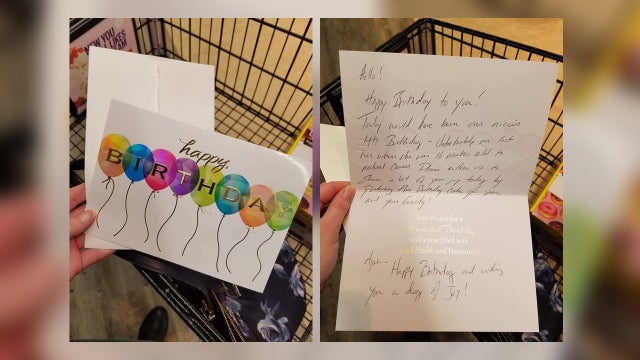 YOU
LIKES
happy
BIRTHDAY
Hello!
Happy Birthday to you!
Today would have been our niece's
4th Birthday - Unfortunately we lost
her when she was 16 months old to
natural causes. Please allow us to
share a bit of your joy today by
Birthday Cake for you
and your family!
Best Wishes for a
Wonderful Birthday
and a year filled with
Good Health and Happiness!
Again - Happy Birthday and wishing
you a day of Joy!